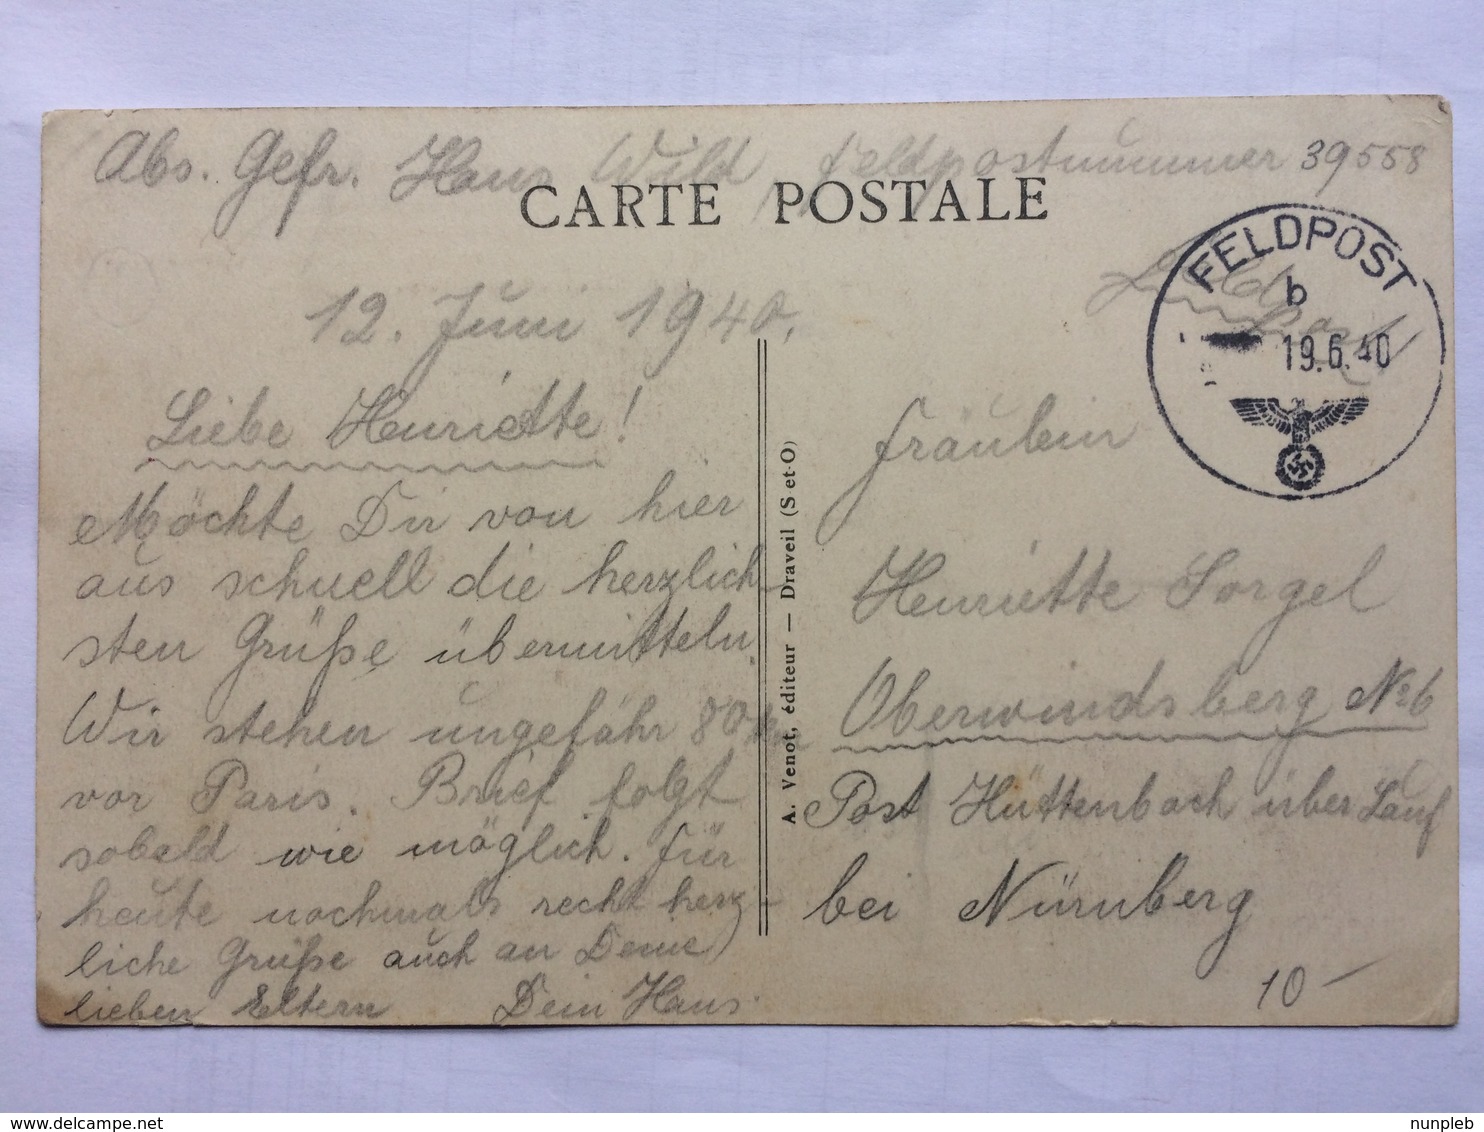 Abs. Gefr. Hans Wild, Feldpostnummer 39558
CARTE POSTALE
FELDPOST
b
19.6.40
Feldpost
12. Juni 1940.
Liebe Henriette!
Möchte Dir von hier
aus schnell die herzlich-
sten Grüße übermitteln.
Wir stehen ungefähr 80 km
vor Paris. Brief folgt
sobald wie möglich. Für
heute nochmals recht herz-
liche Grüße auch an Deine
lieben Eltern Dein Hans.
A. Venot, éditeur — Draveil (S et-O)
Fräulein
Henriette Sorgel
Oberwindsberg No 6
Post Hüttenbach über Lauf
bei Nürnberg
10 -
delcampe.net
nunpleb